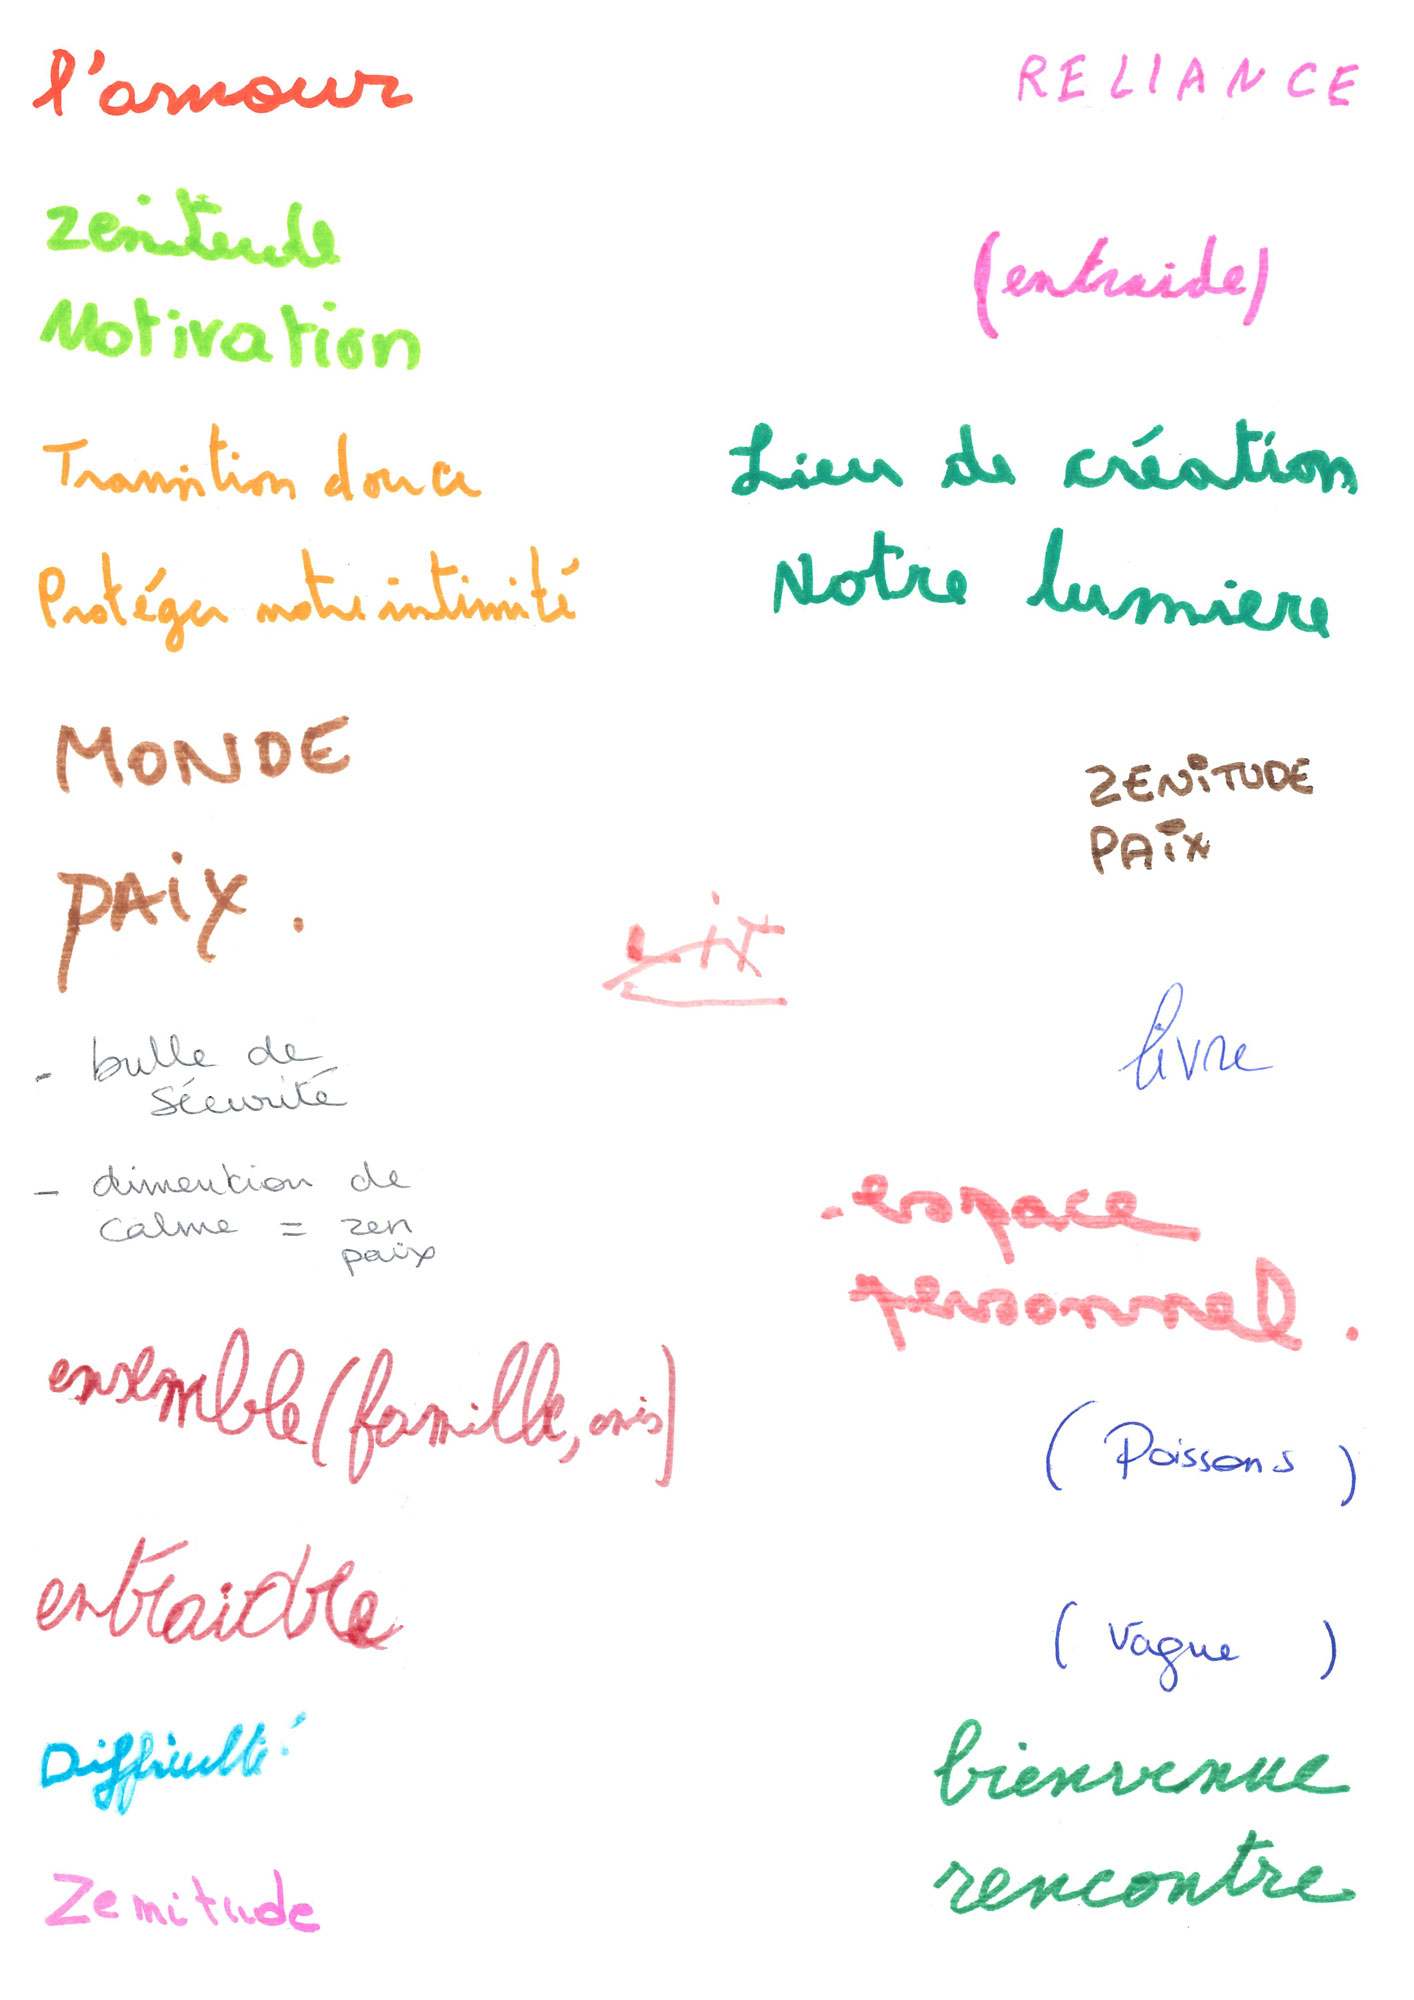 l'amour
RELIANCE
Zenitude
(entraide)
Motivation
Transition douce
Lieu de création
Protéger notre intimité
Notre lumiere
MONDE
ZENiTUDE
PAix
PAiX.
LiT
livre
- bulle de
sécurité
- dimention de
calme = zen
paix
- espace
personnel.
ensemble (famille, amis)
(Poissons)
entraidre
(Vague)
Difficulté
bienvenue
rencontre
Zenitude